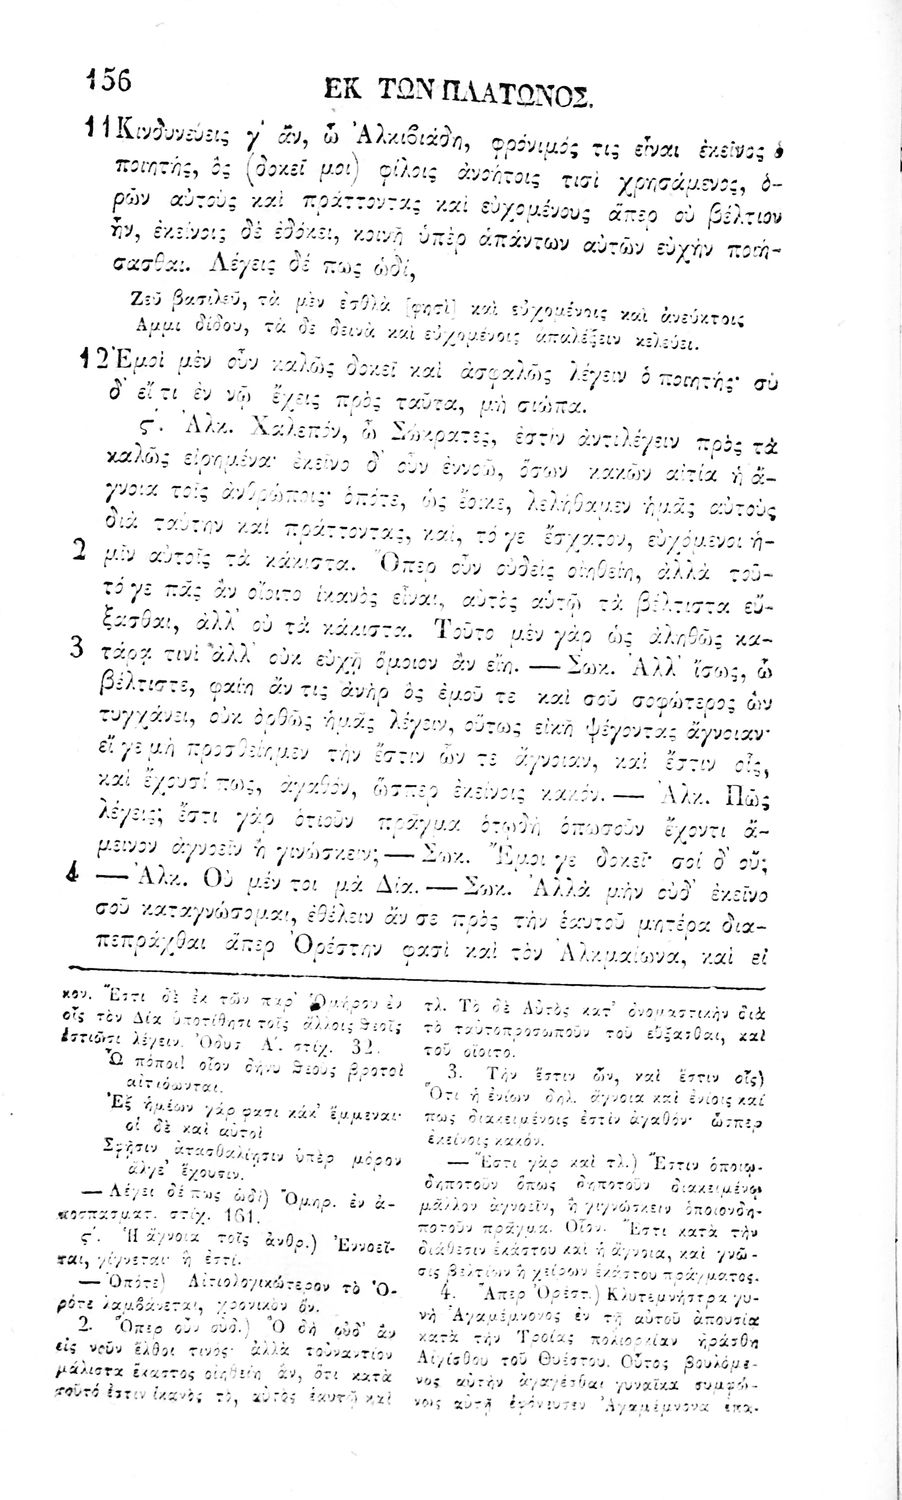 156
ΕΚ ΤΩΝ ΠΛΑΤΩΝΟΣ.
11 Κινδυνεύεις γ' ἄν, ὦ Ἀλκιβιάδη, φρόνιμός τις εἶναι ἐκεῖνος ὁ
ποιητής, ὃς (δοκεῖ μοι) φίλοις ἀνοήτοις τισὶ χρησάμενος, ὁ-
ρῶν αὐτοὺς καὶ πράττοντας καὶ εὐχομένους ἅπερ οὐ βέλτιον
ἦν, ἐκείνοις δὲ ἐδόκει, κοινῇ ὑπὲρ ἁπάντων αὐτῶν εὐχὴν ποιή-
σασθαι. Λέγεις δέ πως ὡδί,
Ζεῦ βασιλεῦ, τὰ μὲν ἐσθλὰ [φησὶ] καὶ εὐχομένοις καὶ ἀνεύκτοις
Αμμι δίδου, τὰ δὲ δεινὰ καὶ εὐχομένοις ἀπαλέξειν κελεύει.
12 Ἐμοὶ μὲν οὖν καλῶς δοκεῖ καὶ ἀσφαλῶς λέγειν ὁ ποιητής· σὺ
δ' εἴ τι ἐν νῷ ἔχεις πρὸς ταῦτα, μὴ σιώπα.
ς'. Ἀλκ. Χαλεπόν, ὦ Σώκρατες, ἐστὶν ἀντιλέγειν πρὸς τὰ
καλῶς εἰρημένα· ἐκεῖνο δ' οὖν ἐννοῶ, ὅσων κακῶν αἰτία ἡ ἄ-
γνοια τοῖς ἀνθρώποις· ὁπότε, ὡς ἔοικε, λελήθαμεν ἡμᾶς αὐτοὺς
διὰ ταύτην καὶ πράττοντας, καί, τό γε ἔσχατον, εὐχόμενοι ἡ-
2 μῖν αὐτοῖς τὰ κάκιστα. Ὅπερ οὖν οὐδεὶς οἰηθείη, ἀλλὰ τοῦ-
τό γε πᾶς ἂν οἴοιτο ἱκανὸς εἶναι, αὐτὸς αὑτῷ τὰ βέλτιστα εὔ-
ξασθαι, ἀλλ' οὐ τὰ κάκιστα. Τοῦτο μὲν γὰρ ὡς ἀληθῶς κα-
3 τάρᾳ τινὶ ἀλλ' οὐκ εὐχῇ ὅμοιον ἂν εἴη. — Σωκ. Ἀλλ' ἴσως, ὦ
βέλτιστε, φαίη ἄν τις ἀνὴρ ὃς ἐμοῦ τε καὶ σοῦ σοφώτερος ὢν
τυγχάνει, οὐκ ὀρθῶς ἡμᾶς λέγειν, οὕτως εἰκῆ ψέγοντας ἄγνοιαν·
εἴ γε μὴ προσθείημεν τὴν ἔστιν ὧν τε ἄγνοιαν, καὶ ἔστιν οἷς,
καὶ ἔχουσί πως, ἀγαθόν, ὥσπερ ἐκείνοις κακόν. — Ἀλκ. Πῶς
λέγεις; ἔστι γὰρ ὁτιοῦν πρᾶγμα ὁτῳδὴ ὁπωσοῦν ἔχοντι ἄ-
μεινον ἀγνοεῖν ἢ γινώσκειν; — Σωκ. Ἔμοιγε δοκεῖ· σοὶ δ' οὔ;
4 — Ἀλκ. Οὐ μέν τοι μὰ Δία. — Σωκ. Ἀλλὰ μὴν οὐδ' ἐκεῖνο
σοῦ καταγνώσομαι, ἐθέλειν ἄν σε πρὸς τὴν ἑαυτοῦ μητέρα δια-
πεπρᾶχθαι ἅπερ Ὀρέστην φασὶ καὶ τὸν Ἀλκμαίωνα, καὶ εἰ
κον. Ἔστι δὲ ἐκ τῶν παρ' Ὁμήρου ἐν
οἷς τὸν Δία ὑποτίθησι τοῖς ἄλλοις θεοῖς
ἑστιῶσι λέγειν. Ὀδυς Α'. στίχ. 32.
Ὢ πόποι! οἷον δήνυ θεοὺς βροτοὶ
αἰτιόωνται.
Ἐξ ἡμέων γάρ φασι κάκ' ἔμμεναι·
οἱ δὲ καὶ αὐτοὶ
Σφῇσιν ἀτασθαλίῃσιν ὑπὲρ μόρον
ἄλγε' ἔχουσιν.
— Λέγει δέ πως ὡδί) Ὁμηρ. ἐν ἀ-
ποσπασματ. στίχ. 161.
ς'. Ἡ ἄγνοια τοῖς ἀνθρ.) Ἐννοεῖ-
ται, γίγνεται ἢ ἐστί.
— Ὁπότε) Αἰτιολογικώτερον τὸ Ὁ-
πότε λαμβάνεται, χρονικὸν ὄν.
2. Ὅπερ οὖν οὐδ.) Ὃ δὴ οὐδ' ἂν
εἰς νοῦν ἔλθοι τινος· ἀλλὰ τοὐναντίον
μάλιστα ἕκαστος οἰηθείη ἄν, ὅτι κατὰ
τοῦτό ἐστιν ἱκανὸς τὸ, αὐτὸς ἑαυτῷ καὶ
τλ. Τὸ δὲ Αὐτὸς κατ' ὀνομαστικὴν διὰ
τὸ ταυτοπροσωποῦν τοῦ εὔξασθαι, καὶ
τοῦ οἴοιτο.
3. Τὴν ἔστιν ὧν, καὶ ἔστιν οἷς)
Ὅτι ἡ ἐνίων δηλ. ἄγνοια καὶ ἐνίοις καί
πως διακειμένοις ἐστὶν ἀγαθόν· ὥσπερ
ἐκείνοις κακόν.
— Ἔστι γὰρ καὶ τλ.) Ἔστιν ὁποιῳ-
δηποτοῦν ὅπως δηποτοῦν διακειμένῳ
μᾶλλον ἀγνοεῖν, ἢ γιγνώσκειν ὁποιονδη-
ποτοῦν πρᾶγμα. Οἷον. Ἔστι κατὰ τὴν
διάθεσιν ἑκάστου καὶ ἡ ἄγνοια, καὶ γνῶ-
σις βελτίων ἢ χείρων ἑκάστου πράγματος.
4. Ἅπερ Ὀρέστ.) Κλυτεμνήστρα γυ-
νὴ Ἀγαμέμνονος ἐν τῇ αὐτοῦ ἀπουσίᾳ
κατὰ τὴν Τροίας πολιορκίαν ἠράσθη
Αἰγίσθου τοῦ Θυέστου. Οὗτος βουλόμε-
νος αὐτὴν ἀγαγέσθαι γυναῖκα συμφώ-
νως αὐτῇ ἐφόνευσεν Ἀγαμέμνονα ἐπα-